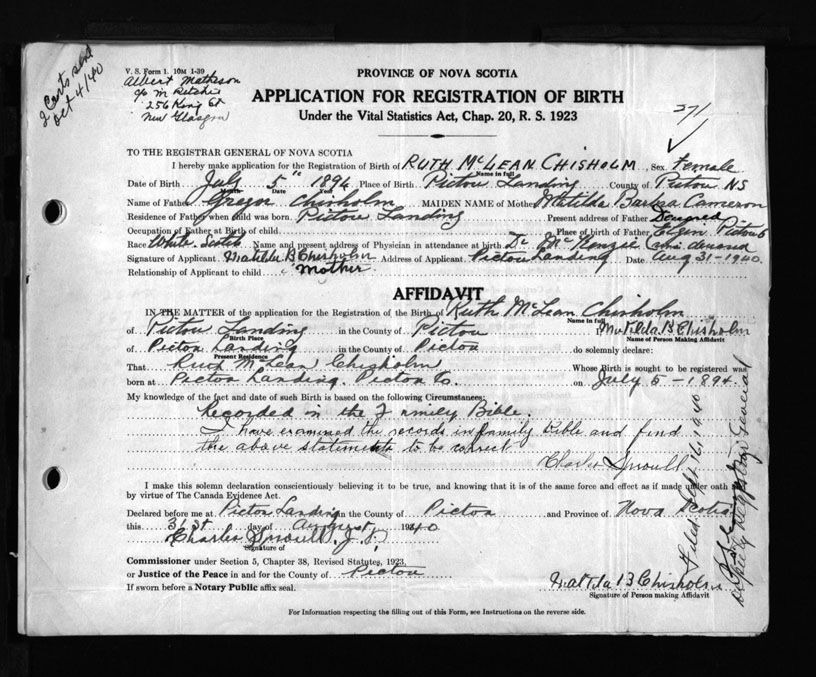 2 Certs sent
Oct 4/40
V. S. Form 1. 10M 1-39
Albert Matheson
c/o M Ritchie
256 King St
New Glasgow
PROVINCE OF NOVA SCOTIA
APPLICATION FOR REGISTRATION OF BIRTH
Under the Vital Statistics Act, Chap. 20, R. S. 1923
271
TO THE REGISTRAR GENERAL OF NOVA SCOTIA
I hereby make application for the Registration of Birth of RUTH McLEAN CHISHOLM, Sex Female
Name in full
Date of Birth July 5" 1894 Place of Birth Pictou Landing County of Pictou NS
Month Day Year
Name of Father Gregor Chisholm MAIDEN NAME of Mother Matilda Cameron
Residence of Father when child was born. Pictou Landing Present address of Father
Occupation of Father at Birth of child Place of birth of Father
Race White Scotch Name and present address of Physician in attendance at birth Dr McKenzie
Signature of Applicant Matilda B Chisholm Address of Applicant Pictou Landing Date Aug 31-1940.
Relationship of Applicant to child Mother
AFFIDAVIT
IN THE MATTER of the application for the Registration of the Birth of Ruth McLean Chisholm
Name in full
of Pictou Landing in the County of Pictou Matilda B Chisholm
Birth Place Name of Person Making Affidavit
of Pictou Landing in the County of Pictou do solemnly declare:
Present Residence
That Ruth McLean Chisholm Whose Birth is sought to be registered was
born at Pictou Landing. Pictou Co. on July 5-1894.
My knowledge of the fact and date of such Birth is based on the following Circumstances:
Recorded in the Family Bible.
I have examined the records in family bible and find
the above statements to be correct
Charles Sproull
I make this solemn declaration conscientiously believing it to be true, and knowing that it is of the same force and effect as if made under oath
by virtue of The Canada Evidence Act.
Declared before me at Pictou Landing in the County of Pictou and Province of Nova Scotia
this 31st day of August 1940
Charles Sproull J.P.
Signature of
Commissioner under Section 5, Chapter 38, Revised Statutes, 1923.
or Justice of the Peace in and for the County of Pictou
If sworn before a Notary Public affix seal.
Matilda B Chisholm
Signature of Person making Affidavit
For Information respecting the filling out of this Form, see Instructions on the reverse side.
Filed. Sept 16, 1940
Deputy Registrar General